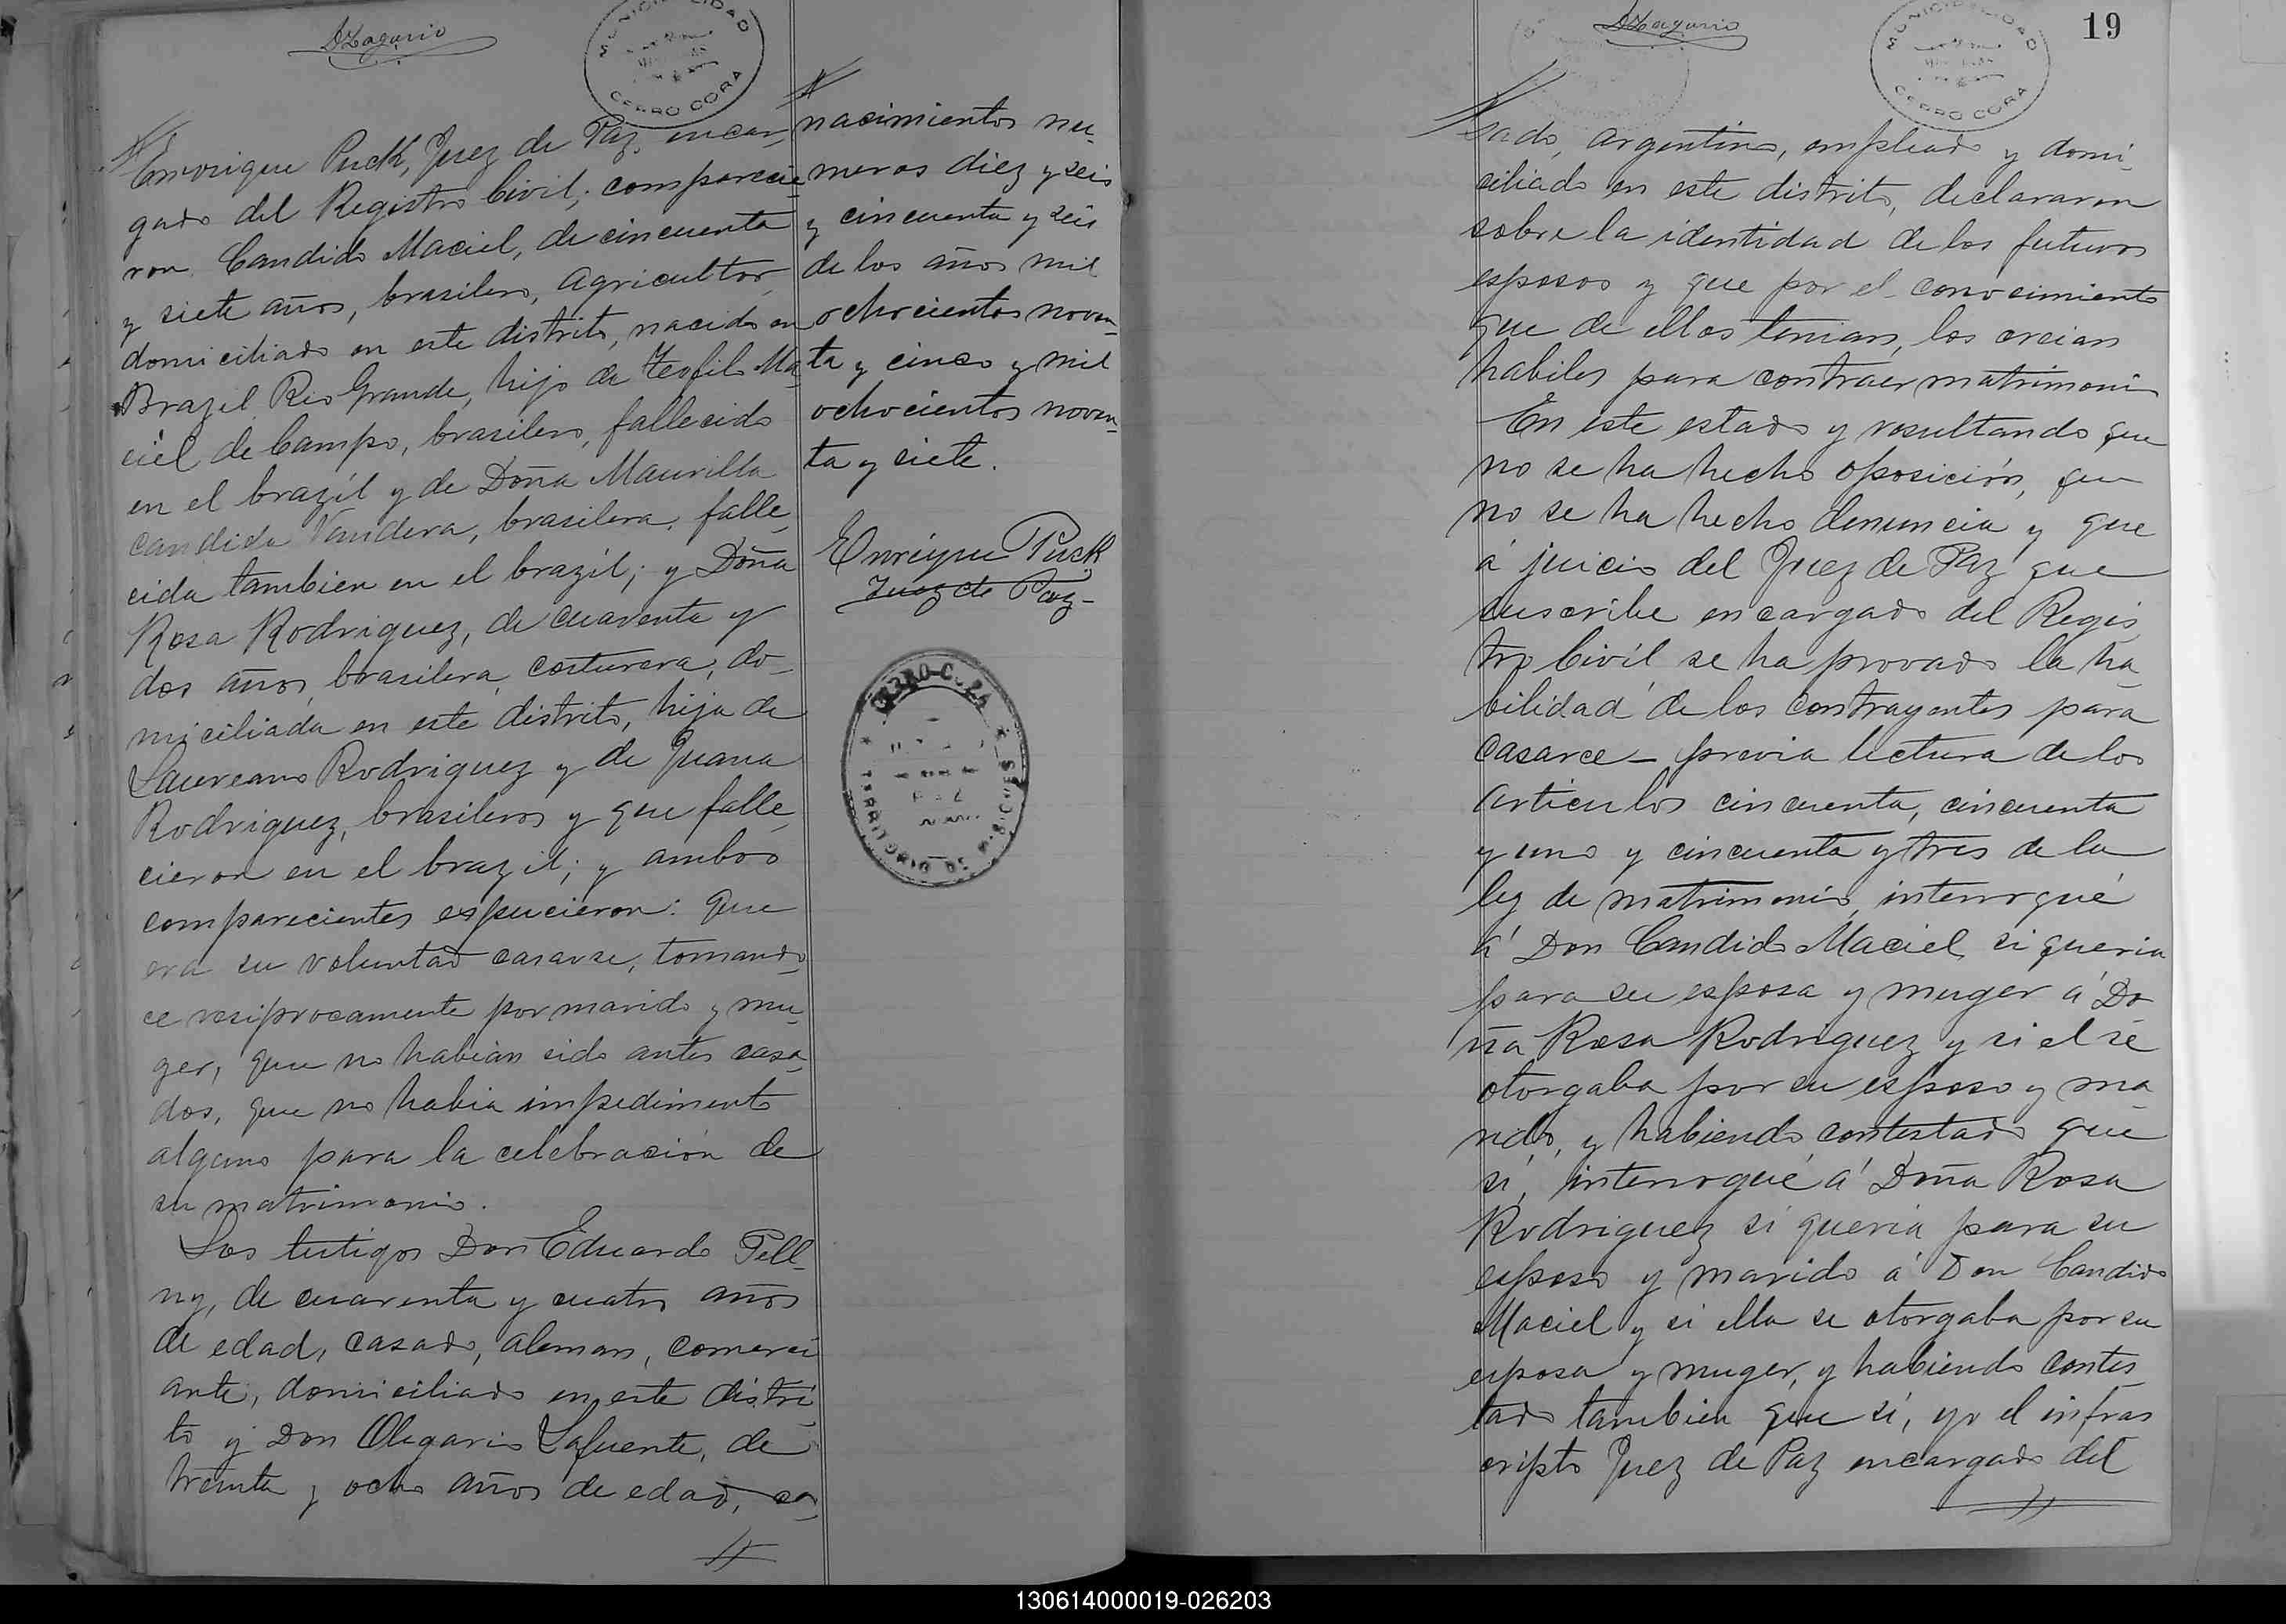 MUNICIPALIDAD
CERRO CORA
Enrrique Puck, Juez de Paz, encar-
gado del Registro Civil; comparecie
ron, Candido Maciel, de cincuenta
y siete años, brasilero, Agricultor,
domiciliado en este distrito, nacido en
Brazil Rio Grande, hijo de Teofilo Ma
ciel de Campo, brasilero, fallecido
en el brazil y de Doña Maurilla
candida Vandera, brasilera, falle
cida tambien en el brazil; y Doña
Rosa Rodriguez, de cuarenta y
dos años, brasilera, costurera, do-
miciliada en este distrito, hija de
Laureano Rodriguez y de Juana
Rodriguez, brasileros y que falle
cieron en el brazil; y ambos
comparecientes espucieron: que
era su voluntad casarse, tomando
ce resiprocamente por marido y mu
ger, que no habian sido antes casa
dos, que no habia impedimento
alguno para la celebracion de
su matrimonio.
Los testigos Don Eduardo Pell-
ny, de cuarenta y cuatro años
de edad, casado, aleman, comerci
ante, domiciliado en este distri
to y Don Olegario Lafuente, de
treinta y ocho años de edad, ca
nacimientos nu-
meros diez y seis
y cincuenta y seis
de los años mil
ochocientos noven-
ta y cinco y mil
ochocientos noven-
ta y siete.
Enrique Puck
Juez de Paz-
19
MUNICIPALIDAD
CERRO CORA
sado, argentino, empleado y domi-
ciliado en este distrito, declararon
sobre la identidad de los futuros
esposos y que por el conocimiento
que de ellos tenian, los creian
habiles para contraer matrimonio
En este estado y resultando que
no se ha hecho oposición, que
no se ha hecho denuncia y que
á juicio del Juez de Paz que
suscribe encargado del Regis
tro Civil se ha provado la ha
bilidad de los contrayentes para
casarce - previa lectura de los
articulos cincuenta, cincuenta
y uno y cincuenta y tres de la
ley de matrimonio, interrogué
á Don Candido Maciel si queria
para su esposa y muger á Do
ña Rosa Rodriguez y si el se
otorgaba por su esposo y ma
rido, y habiendo contestado que
sí, interrogué á Doña Rosa
Rodriguez si queria para su
esposo y marido á Don Candido
Maciel y si ella se otorgaba por su
esposa y muger, y habiendo contes
tado tambien que sí, yo el infras
cripto Juez de Paz encargado del
130614000019-026203